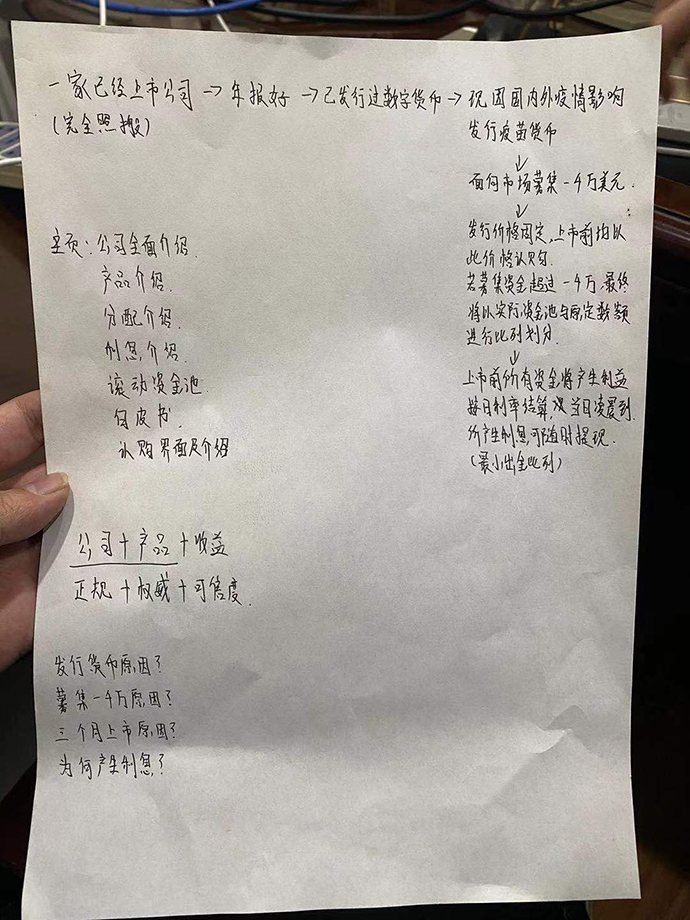 一家已经上市公司→年报好→已发行过数字货币→现因国内外疫情影响
(完全照搬)
发行疫苗货币
↓
面向市场募集一千万美元.
↓
发行价格固定,上市前均以
此价格认购.
若募集资金超过一千万,最终
将以实际资金池与原定数额
进行比列划分.
↓
上市前所有资金将产生利益
按日利率结算,次当日凌晨到.
价产生利息,可随时提现.
(最小出金比列)
主页:公司全面介绍.
产品介绍.
分配介绍.
利息,介绍.
滚动资金池
白皮书.
认购界面及介绍
公司+产品+收益
正规+权威+可信度.
发行货币原因?
募集一千万原因?
三个月上市原因?
为何产生利息?